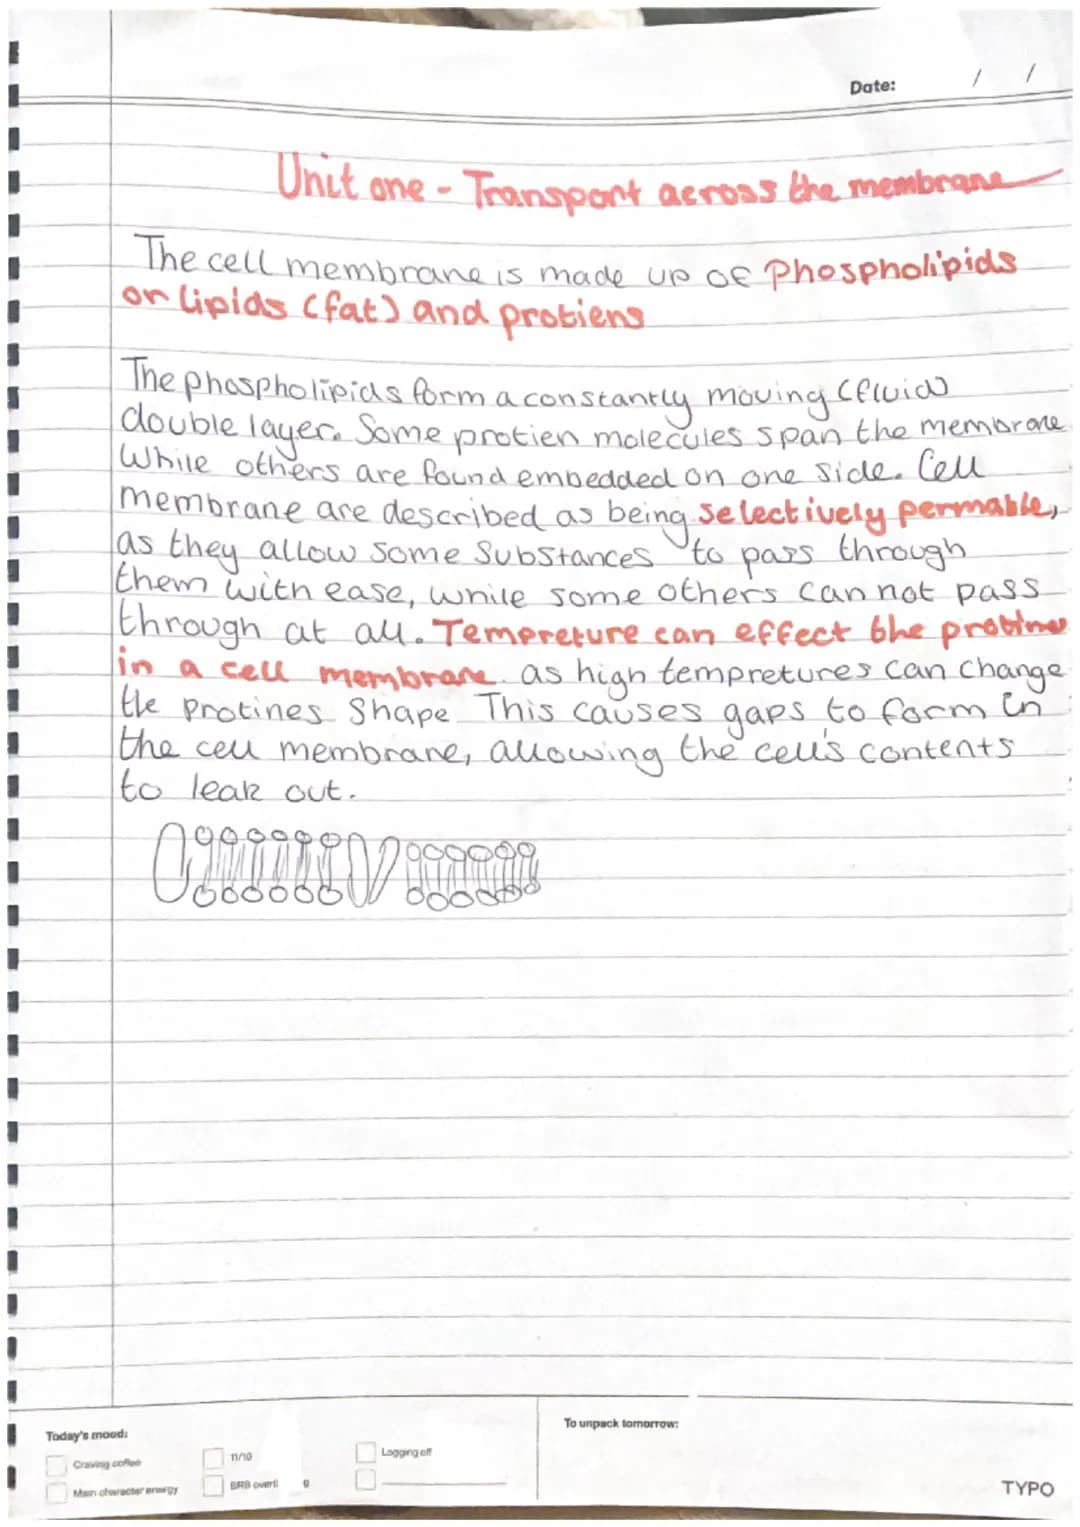 Date: / /
Unit one - Transport across the membrane
The cell membrane is made up of Phospholipids
or lipids (fat) and protiens
The phospholipids form a constantly moving (fluid)
double layer. Some protien molecules span the membrane
While others are found embedded on one side. Cell
membrane are described as being selectively permable,
as they allow some substances to pass through
them with ease, while some others cannot pass
through at all. Tempreture can effect the protines
in a cell membrane. as high tempretures can change
the protines shape This causes gaps to form in
the cell membrane, allowing the cell's contents
to leak out.
Today's mood:
Craving coffee
Main character energy
11/10
BRB overti g
Logging off
To unpack tomorrow:
TYPO